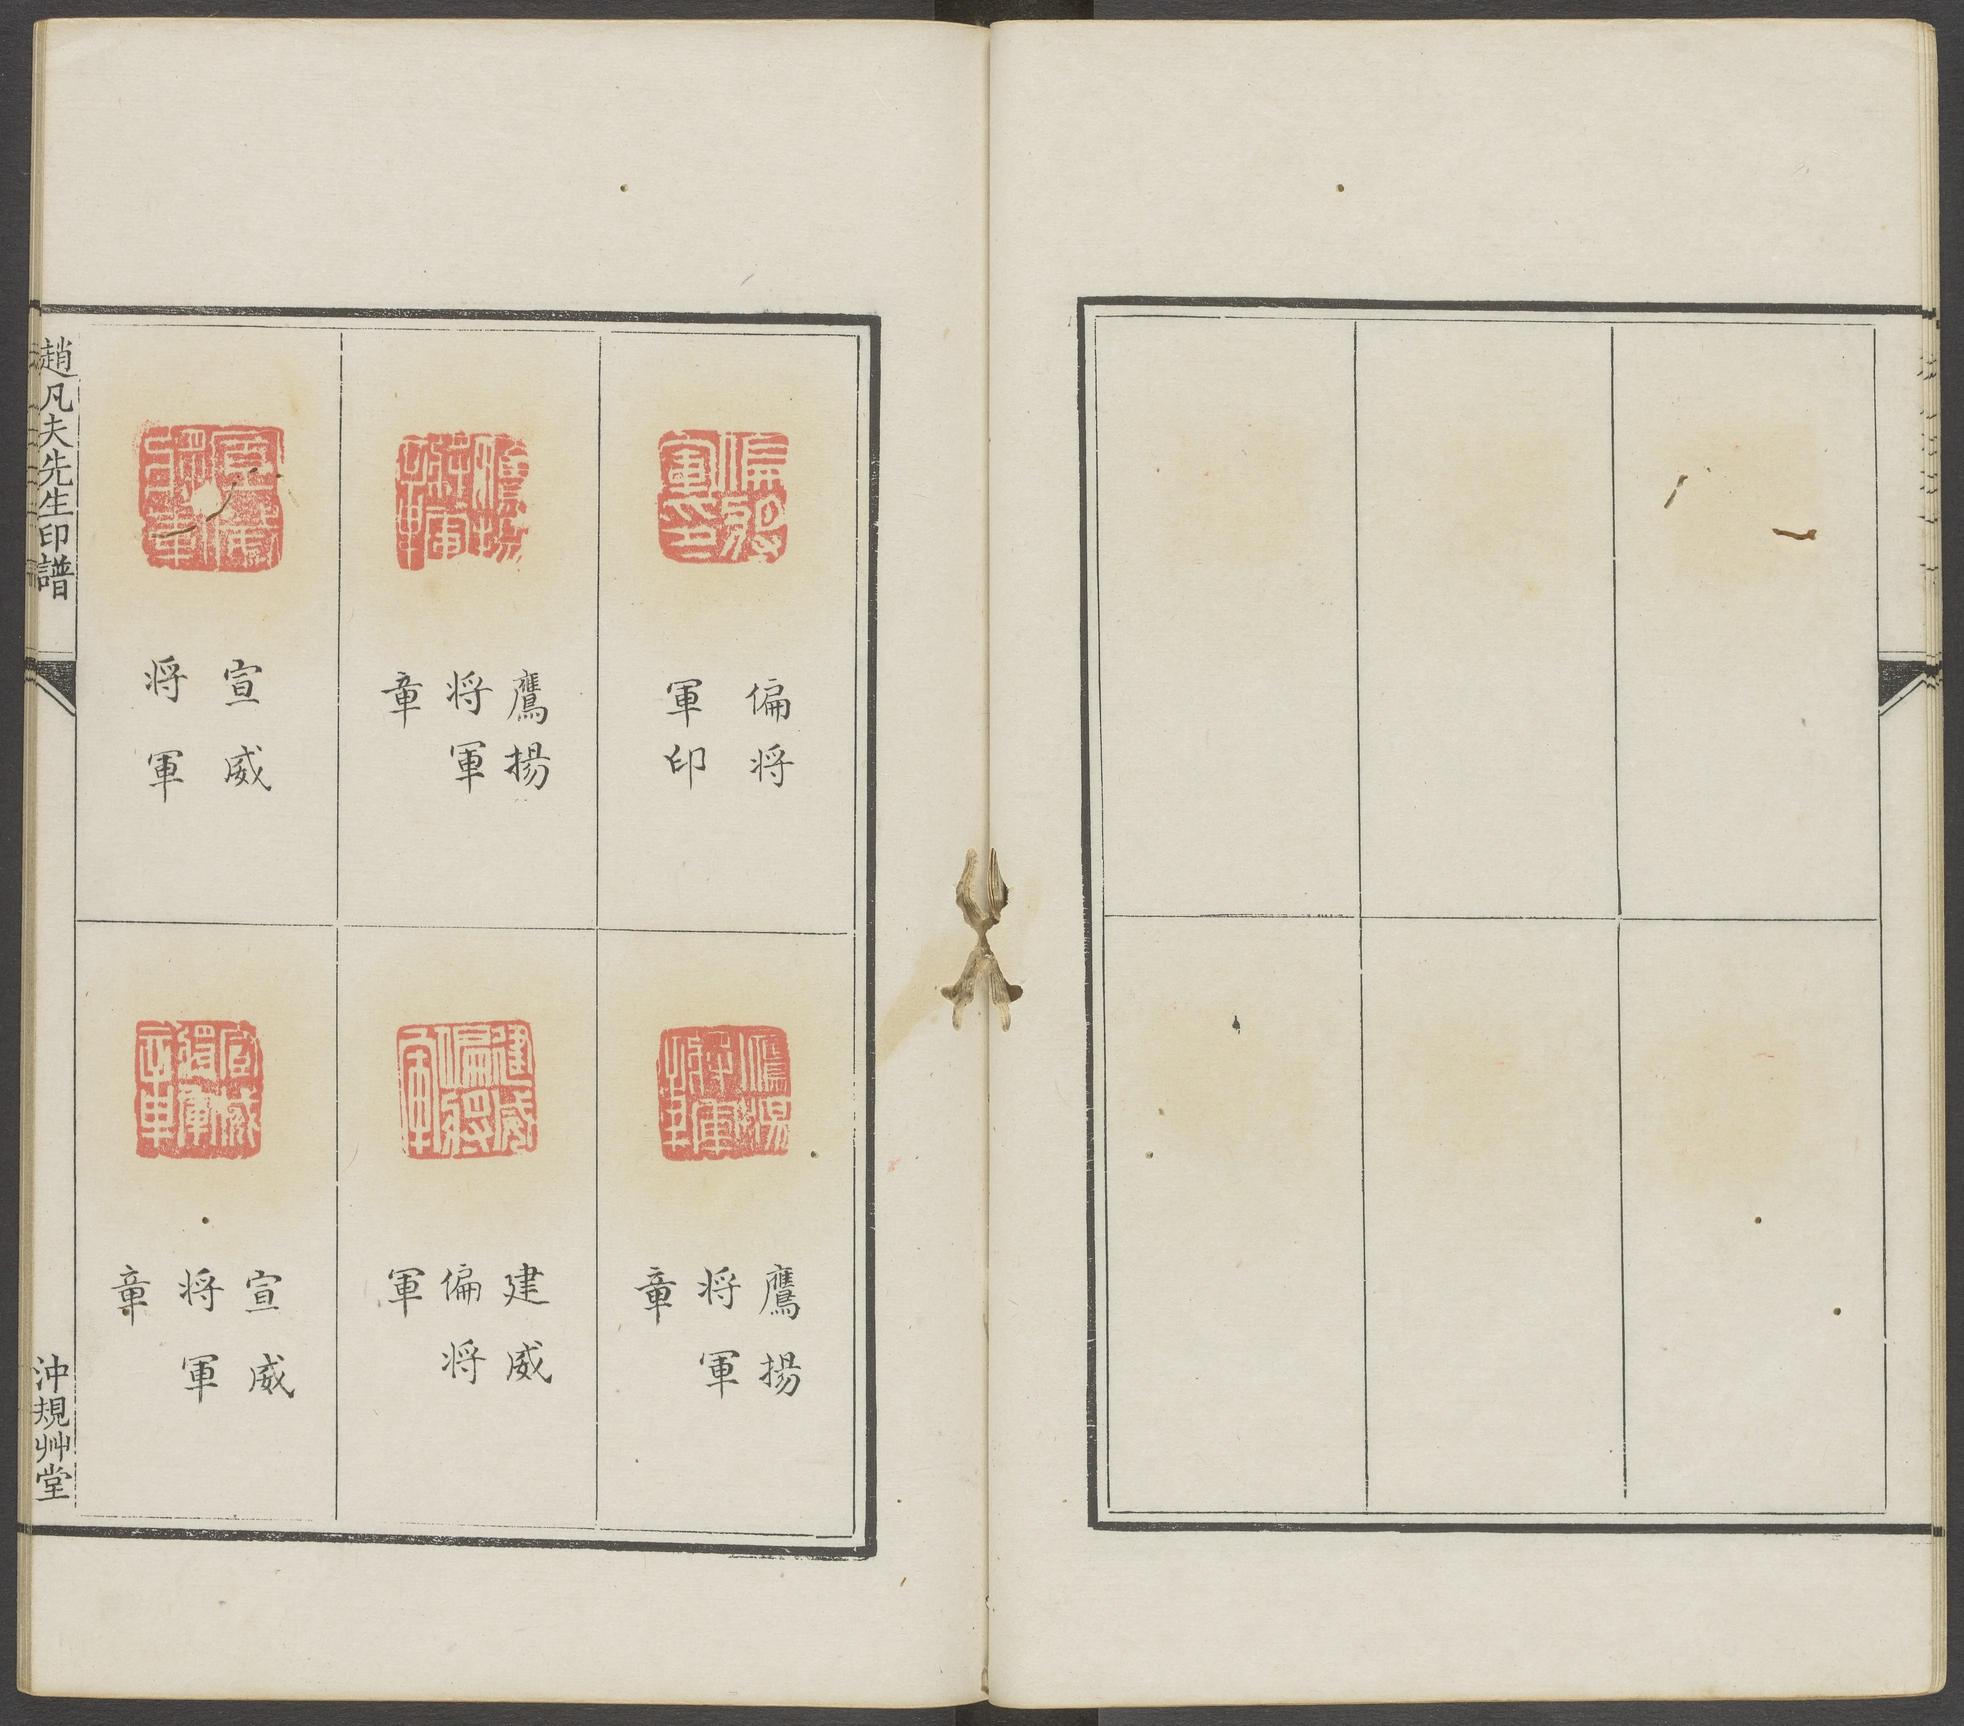 偏将
軍印
鷹揚
将軍
章
宣威
将軍
鷹揚
将軍
章
建威
偏将
軍
宣威
将軍
章
趙凡夫先生印譜
沖規艸堂